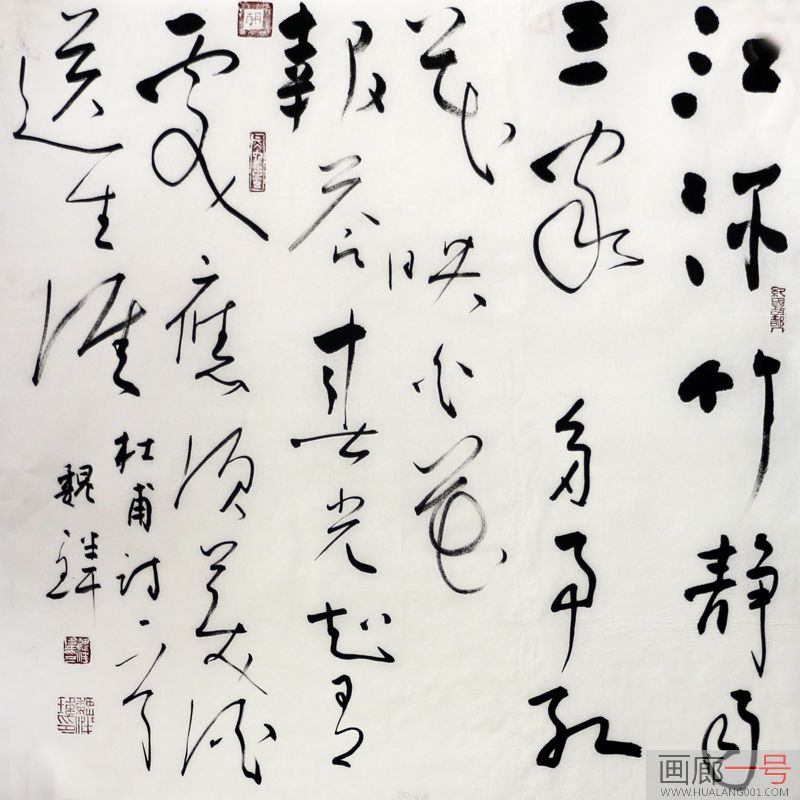 江深竹靜兩
三家多事紅
花映白花
報答春光知有
處應須美酒
送生涯
杜甫詩一首
魏
画廊一号
WWW.HUALANG001.COM